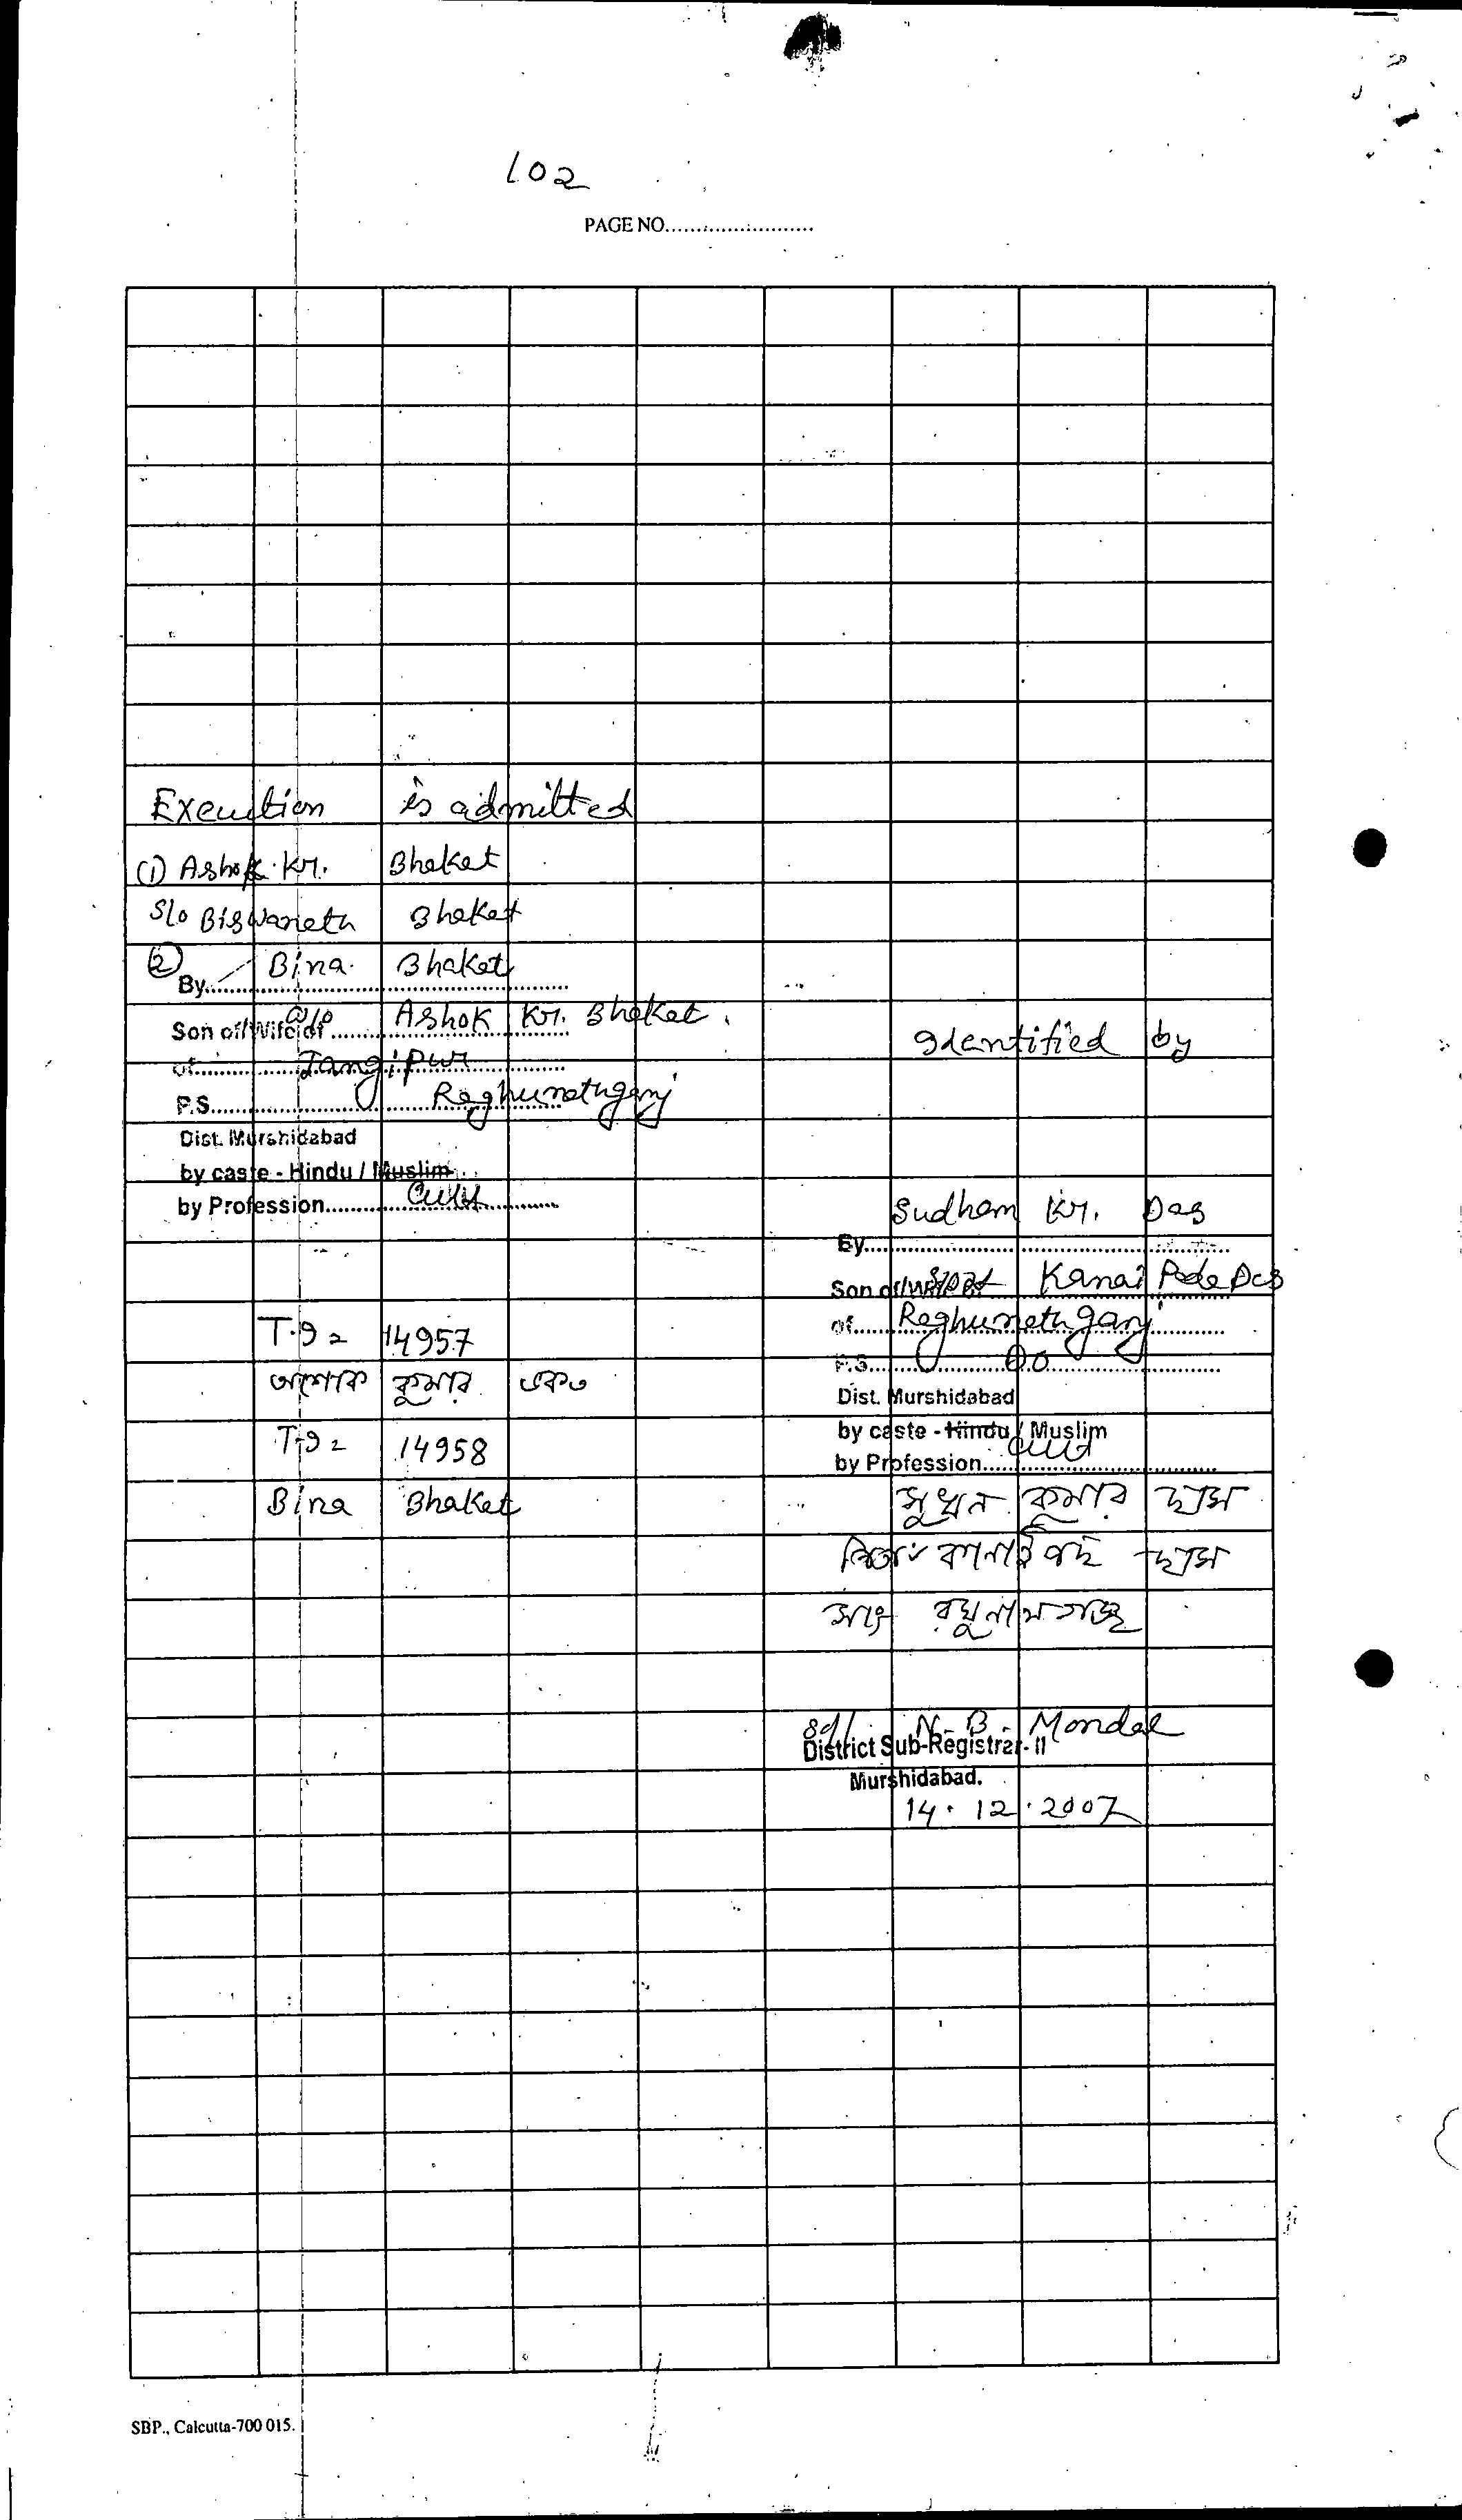 102
PAGE NO........................
Execution is admitted
(1) Ashok Kr. Bhakat
S/o Biswanath Bhakat
(2) By Bina Bhakat
Son of/Wife of W/o Ashok Kr. Bhakat.
of Jangipur
P.S. Raghunathganj
Dist. Murshidabad
by caste - Hindu / Muslim
by Profession
T.I = 14957
অশোক কুমার ভকত
T.I = 14958
Bina Bhakat
Identified by
By Sudhan Kr. Das
Son of/Wife of Kanai Pada Das
of Raghunathganj
P.S. Do
Dist. Murshidabad
by caste - Hindu / Muslim
by Profession
সুধন কুমার দাস
পিতা কানাই পদ দাস
সাং রঘুনাথগঞ্জ
Sd/. N. B. Mondal
District Sub-Registrar- II
Murshidabad.
14. 12. 2007
SBP., Calcutta-700 015.